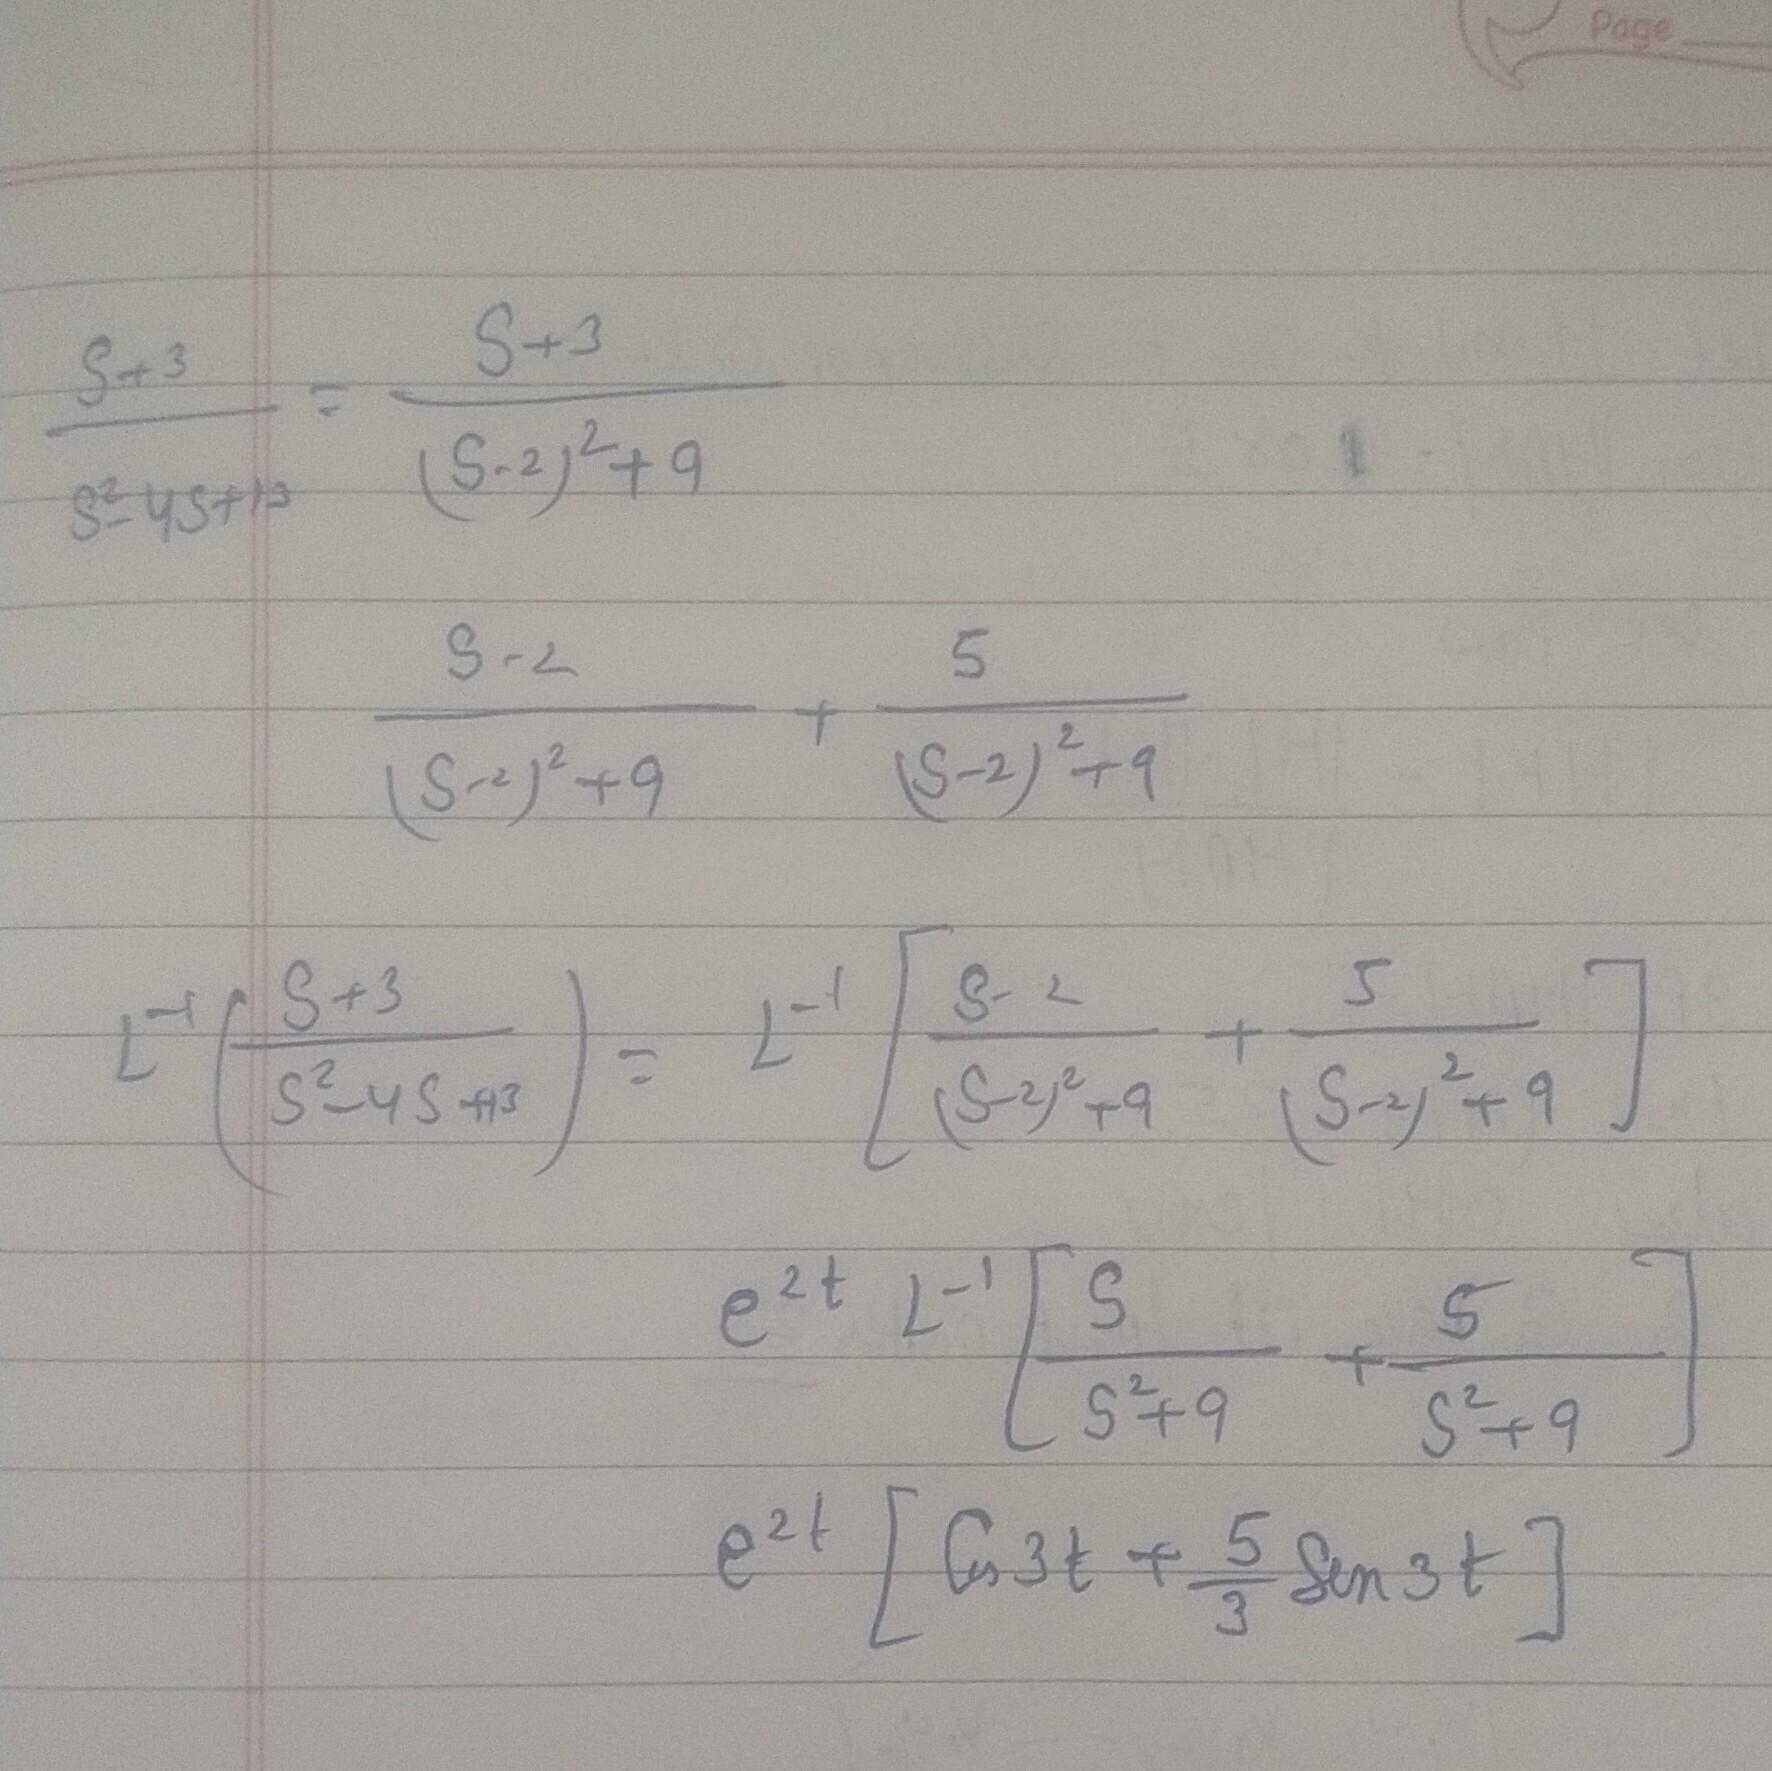 Page
S+3 / S²-4S+13 = S+3 / (S-2)²+9
S-2 / (S-2)²+9 + 5 / (S-2)²+9
L⁻¹ ( S+3 / S²-4S+13 ) = L⁻¹ [ S-2 / (S-2)²+9 + 5 / (S-2)²+9 ]
e²ᵗ L⁻¹ [ S / S²+9 + 5 / S²+9 ]
e²ᵗ [ Cos 3t + 5/3 Sin 3t ]